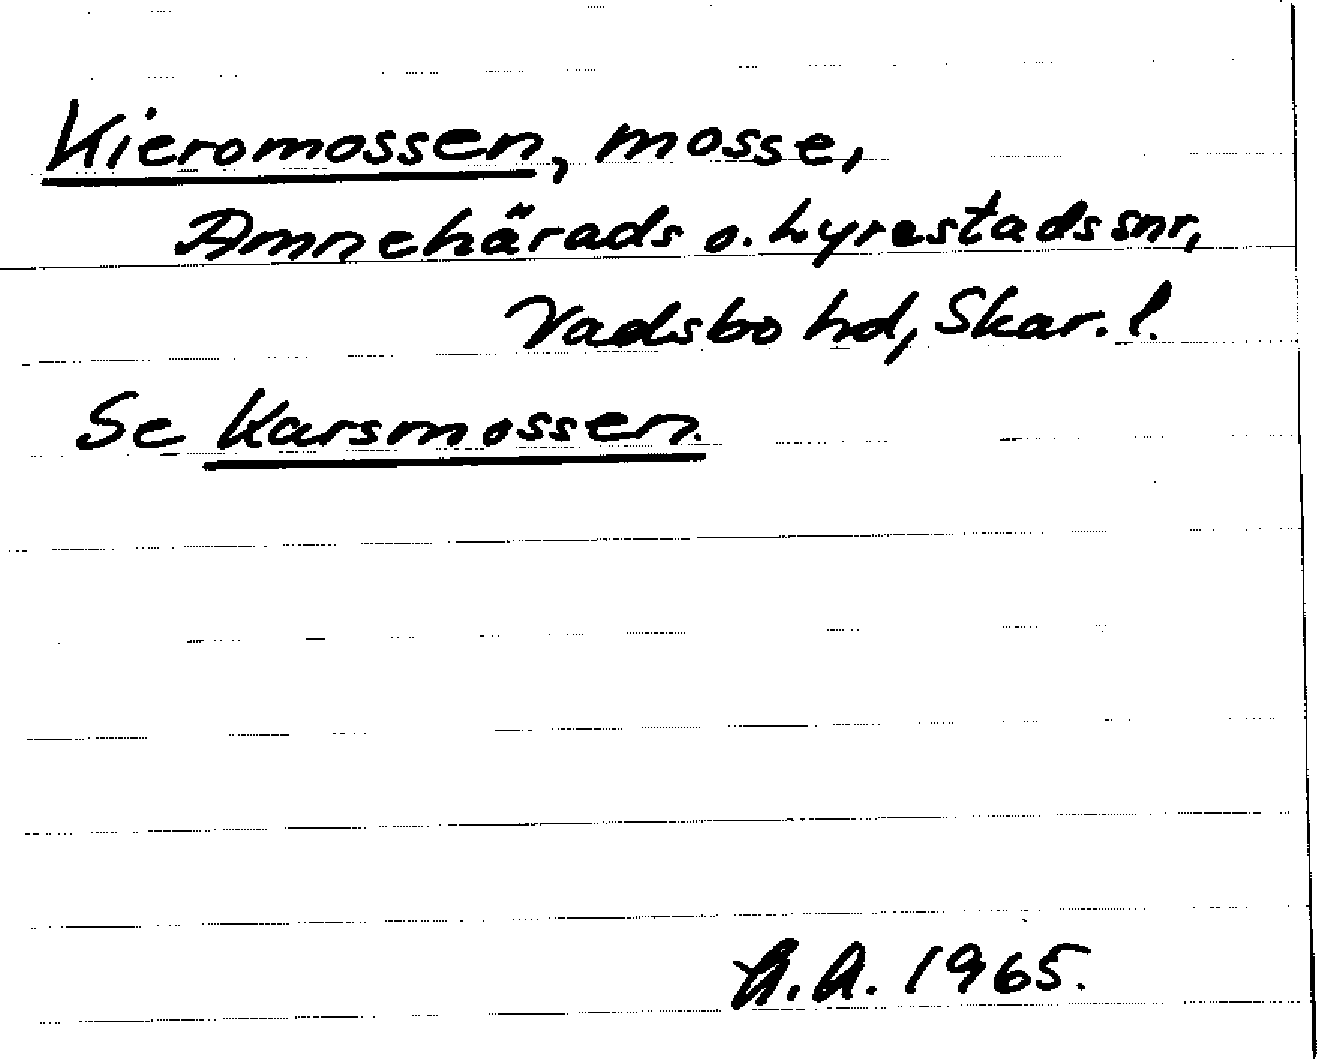 Kieromossen, mosse,
Amnehärads o. Lyrestads snr,
Vadsbo hd, Skar. l.
Se Karsmossen.
A.A. 1965.